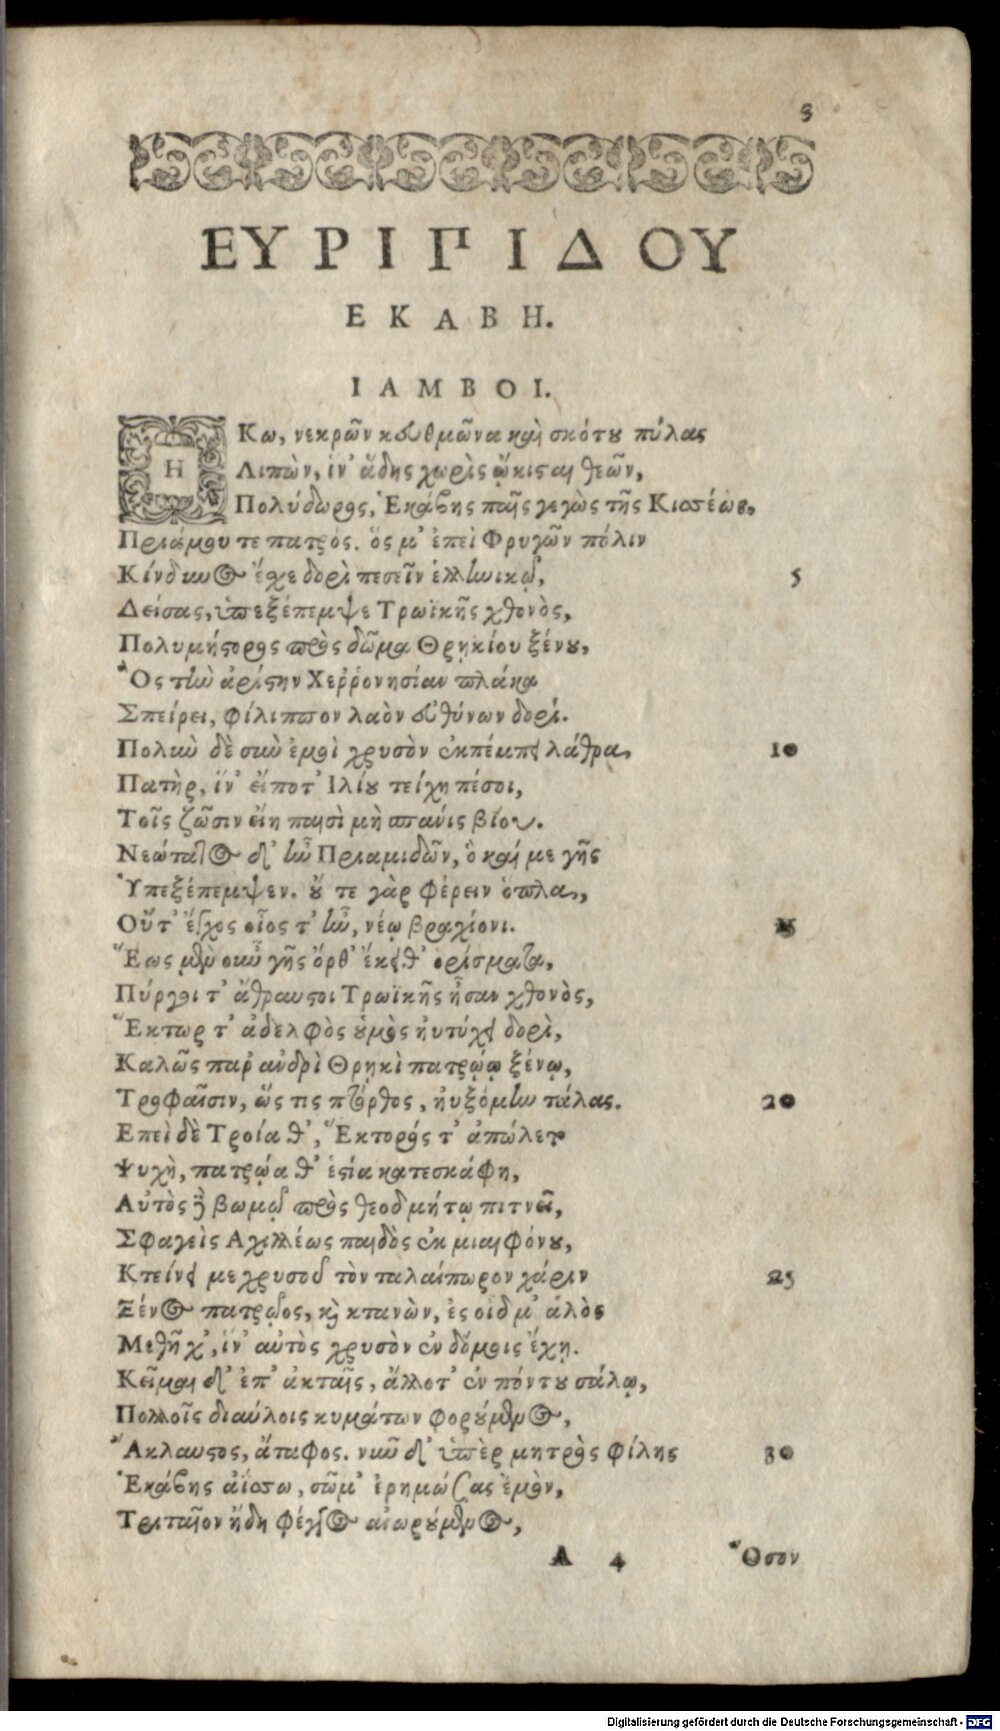 3
ΕΥΡΙΠΙΔΟΥ
ΕΚΑΒΗ.
ΙΑΜΒΟΙ.
ΗΚω, νεκρῶν κευθμῶνα καὶ σκότου πύλας
Λιπὼν, ἵν' ᾅδης χωρὶς ᾤκισαι θεῶν,
Πολύδωρος, Ἑκάβης παῖς γεγὼς τῆς Κισσέως,
Πριάμου τε πατρός. ὅς μ' ἐπεὶ Φρυγῶν πόλιν
Κίνδυνος ἔσχε δορὶ πεσεῖν ἑλληνικῷ, 5
Δείσας, ὑπεξέπεμψε Τρωϊκῆς χθονὸς,
Πολυμήστορος πρὸς δῶμα Θρῃκίου ξένου,
Ὃς τὴν ἀρίστην Χερῤῥονησίαν πλάκα
Σπείρει, φίλιππον λαὸν εὐθύνων δορί.
Πολὺν δὲ σὺν ἐμοὶ χρυσὸν ἐκπέμπει λάθρα, 10
Πατὴρ, ἵν' εἴποτ' Ἰλίου τείχη πέσοι,
Τοῖς ζῶσιν εἴη παισὶ μὴ σπάνις βίου.
Νεώτατος δ' ἦν Πριαμιδῶν, ὃ καί με γῆς
Ὑπεξέπεμψεν. οὔ τε γὰρ φέρειν ὅπλα,
Οὔτ' ἔγχος οἷος τ' ἦν, νέῳ βραχίονι. 15
Ἕως μὲν οὖν γῆς ὄρθ' ἔκειθ' ὁρίσματα,
Πύργοι τ' ἄθραυστοι Τρωϊκῆς ἦσαν χθονὸς,
Ἕκτωρ τ' ἀδελφὸς οὑμὸς ηὐτύχει δορὶ,
Καλῶς παρ' ἀνδρὶ Θρῃκὶ πατρῴῳ ξένῳ,
Τροφαῖσιν, ὥς τις πτόρθος, ηὐξόμην τάλας. 20
Ἐπεὶ δὲ Τροία θ', Ἕκτορός τ' ἀπώλετο
Ψυχὴ, πατρῴα θ' ἑστία κατεσκάφη,
Αὐτὸς δὲ βωμῷ πρὸς θεοδμήτῳ πιτνεῖ,
Σφαγεὶς Ἀχιλλέως παιδὸς ἐκ μιαιφόνου,
Κτείνει με χρυσοῦ τὸν ταλαίπωρον χάριν 25
Ξένος πατρῷος, καὶ κτανὼν, ἐς οἶδμ' ἁλὸς
Μεθῆχ', ἵν' αὐτὸς χρυσὸν ἐν δόμοις ἔχῃ.
Κεῖμαι δ' ἐπ' ἀκταῖς, ἄλλοτ' ἐν πόντου σάλῳ,
Πολλοῖς διαύλοις κυμάτων φορούμενος,
Ἄκλαυστος, ἄταφος. νῦν δ' ὑπὲρ μητρὸς φίλης 30
Ἑκάβης ἀΐσσω, σῶμ' ἐρημώσας ἐμὸν,
Τριταῖον ἤδη φέγγος αἰωρούμενος,
A 4 Ὅσον
Digitalisierung gefördert durch die Deutsche Forschungsgemeinschaft - DFG